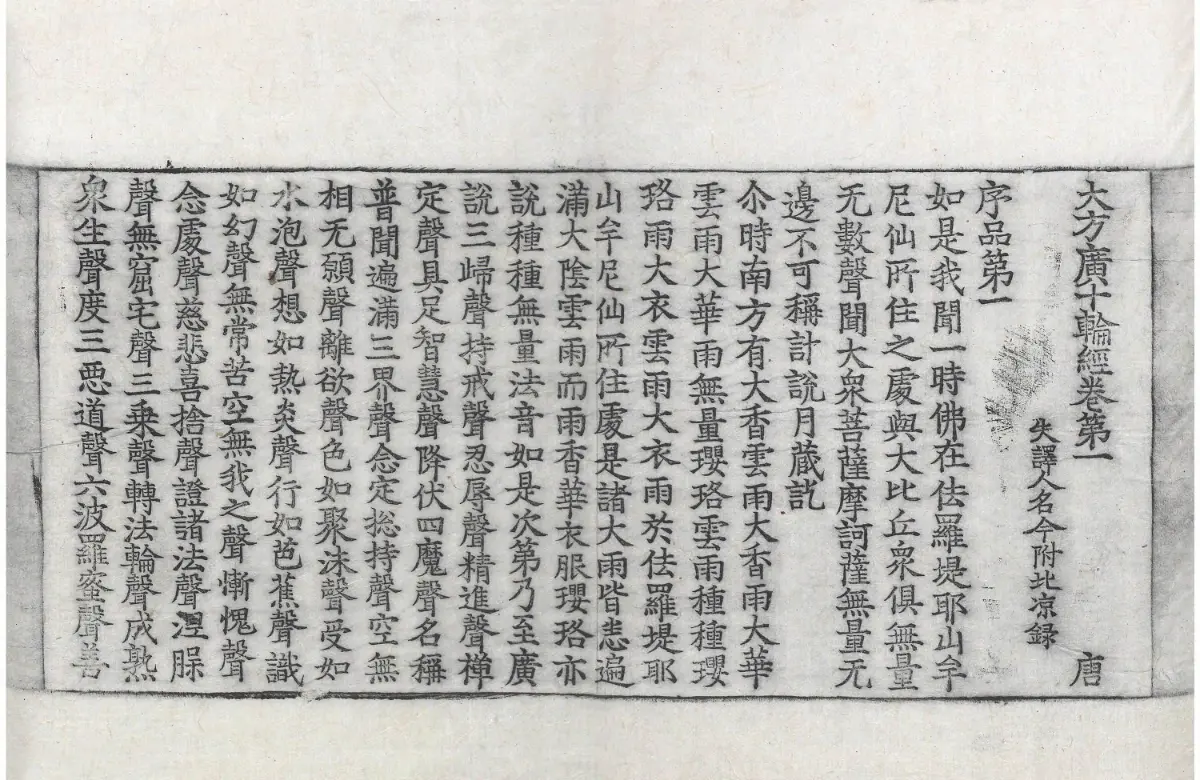 大方廣十輪經卷第一 唐
失譯人名今附北凉録
序品第一
如是我聞一時佛在佉羅堤耶山牟
尼仙所住之處與大比丘衆俱無量
无數聲聞大衆菩薩摩訶薩無量无
邊不可稱計說月蔵訖
尒時南方有大香雲雨大香雨大華
雲雨大華雨無量瓔珞雲雨種種瓔
珞雨大衣雲雨大衣雨於佉羅堤耶
山牟尼仙所住處是諸大雨皆悲遍
滿大陰雲雨而雨香華衣服瓔珞亦
說種種無量法音如是次第乃至廣
說三歸聲持戒聲忍辱聲精進聲禅
定聲具足智慧聲降伏四魔聲名稱
普聞遍滿三界聲念定捴持聲空無
相无願聲離欲聲色如聚沫聲受如
水泡聲想如熱炎聲行如芭蕉聲識
如幻聲無常苦空無我之聲慚愧聲
念處聲慈悲喜捨聲證諸法聲涅槃
聲無窟宅聲三乗聲轉法輪聲成熟
衆生聲度三惡道聲六波羅蜜聲善